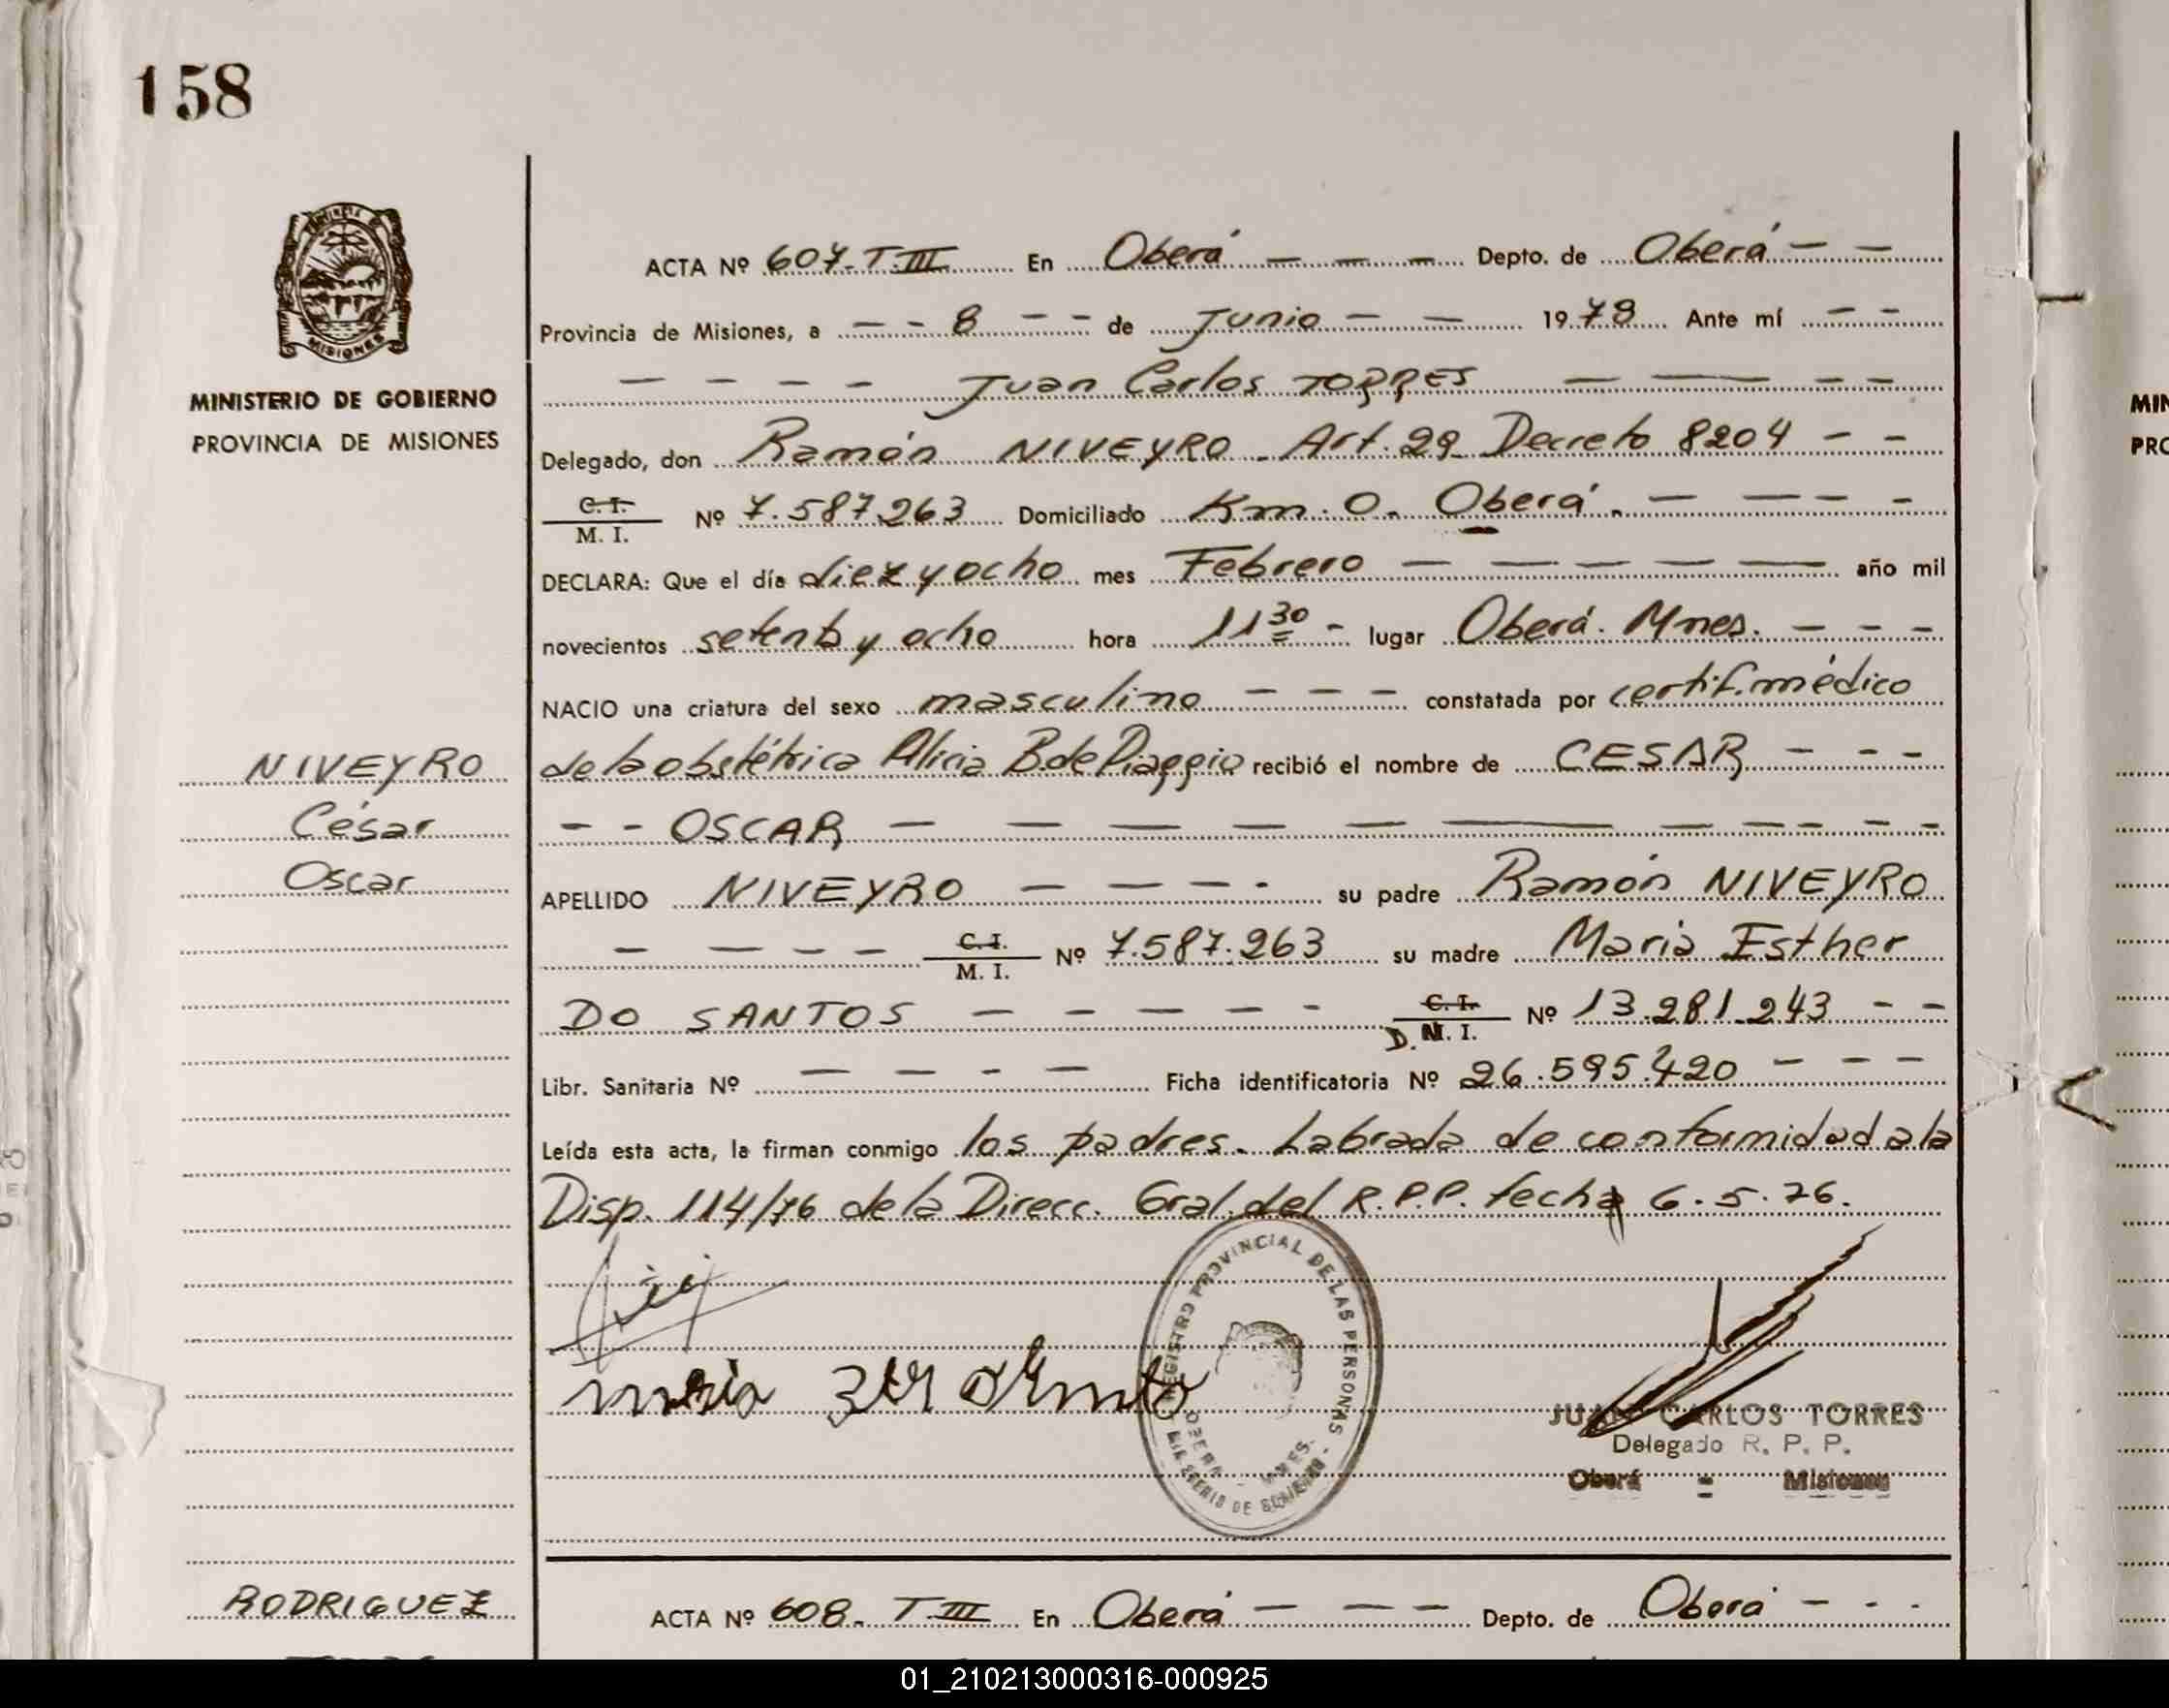 158
MINISTERIO DE GOBIERNO
PROVINCIA DE MISIONES
MISIONES
NIVEYRO
César
Oscar
ACTA Nº 607-T.III En Oberá — — — Depto. de Oberá — —
Provincia de Misiones, a — — 8 — — de Junio — — 1978 Ante mí — —
— — — — Juan Carlos TORRES — — — —
Delegado, don Ramón NIVEYRO - Art. 29 Decreto 8204 — —
C. I. / M. I. Nº 7.587.263 Domiciliado Km. 0. Oberá. — — — -
DECLARA: Que el día diez y ocho mes Febrero — — — — — año mil
novecientos setenta y ocho hora 11 30 - lugar Oberá. Mnes. — — —
NACIO una criatura del sexo masculino — — — constatada por certif. médico
de la obstétrica Alicia B. de Piaggio recibió el nombre de CESAR — — —
— — OSCAR — — — — — — — — — — —
APELLIDO NIVEYRO — — — - su padre Ramón NIVEYRO
— — — — C. I. / M. I. Nº 7.587.263 su madre Maria Esther
DO SANTOS — — — — — - C. I. / D. N. I. Nº 13.281.243 — —
Libr. Sanitaria Nº — — - — Ficha identificatoria Nº 26.595.420 — — —
Leída esta acta, la firman conmigo los padres. Labrada de conformidad a la
Disp. 114/76 de la Direcc. Gral. del R.P.P. fecha 6.5.76.
REGISTRO PROVINCIAL DE LAS PERSONAS
MINISTERIO DE GOBIERNO
OBERA - MNES.
maria
JUAN CARLOS TORRES
Delegado R. P. P.
Oberá - Misiones
RODRIGUEZ
ACTA Nº 608- T III En Oberá — — — — Depto. de Oberá — - -
MIN
PRO
01_210213000316-000925